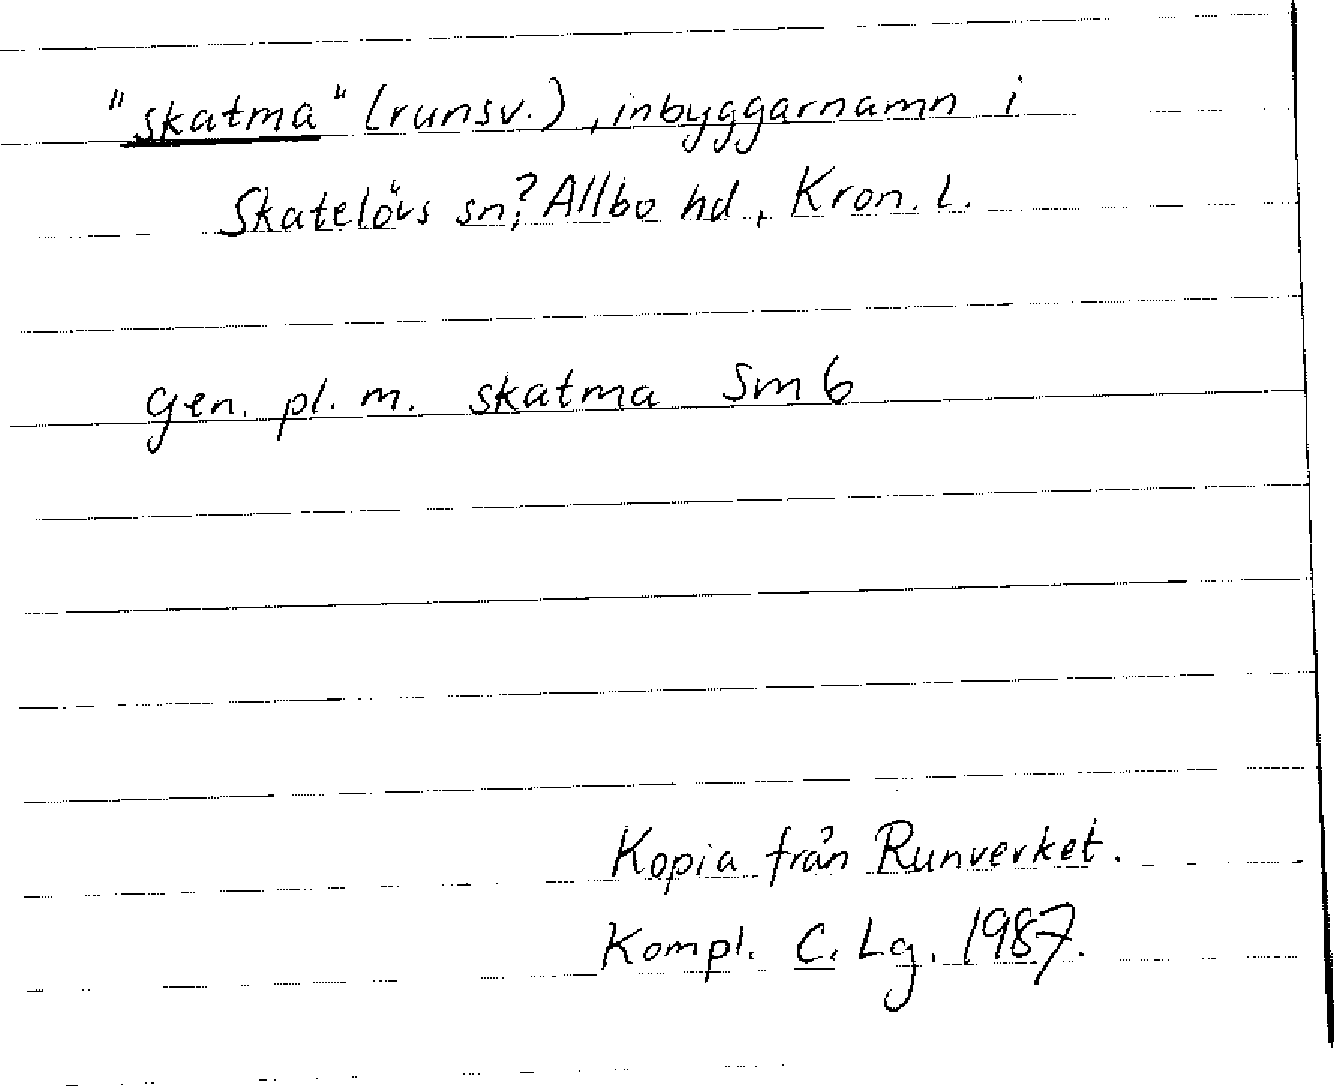 "skatma" (runsv.), inbyggarnamn i
Skatelövs sn?, Allbo hd, Kron. L.
gen. pl. m. skatma Sm 6
Kopia från Runverket.
Kompl. C. Lg. 1987.